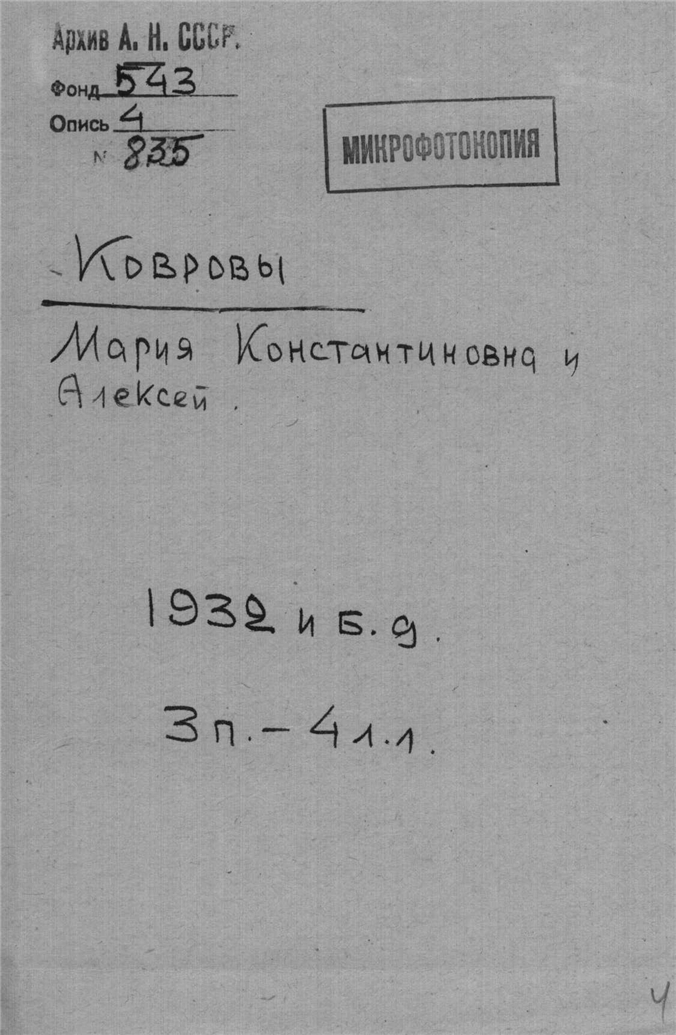 Архив А. Н. СССР.
Фонд 543
Опись 4
N 835
МИКРОФОТОКОПИЯ
Ковровы
Мария Константиновна и
Алексей.
1932 и б. д.
3 п. – 4 л.л.
4